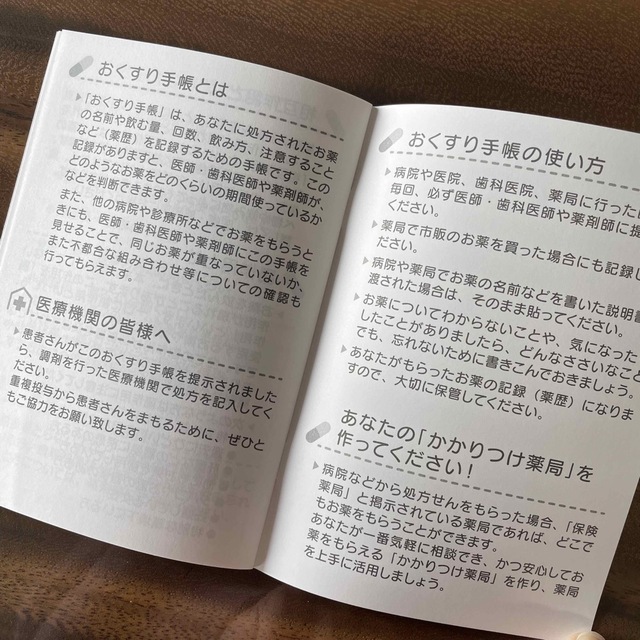 おくすり手帳とは
「おくすり手帳」は、あなたに処方されたお薬
の名前や飲む量、回数、飲み方、注意すること
など（薬歴）を記録するための手帳です。この
記録がありますと、医師・歯科医師や薬剤師が、
どのようなお薬をどのくらいの期間使っているか
などを判断できます。
また、他の病院や診療所などでお薬をもらうと
きにも、医師・歯科医師や薬剤師にこの手帳を
見せることで、同じお薬が重なっていないか、
また不都合な組み合わせ等についての確認も
行ってもらえます。
医療機関の皆様へ
患者さんがこのおくすり手帳を提示されました
ら、調剤を行った医療機関で処方を記入してく
ださい。
重複投与から患者さんをまもるために、ぜひと
もご協力をお願い致します。
おくすり手帳の使い方
病院や医院、歯科医院、薬局に行った
毎回、必ず医師・歯科医師や薬剤師に提
ください。
薬局で市販のお薬を買った場合にも記録し
ださい。
病院や薬局でお薬の名前などを書いた説明書
渡された場合は、そのまま貼ってください。
お薬についてわからないことや、気になった
したことがありましたら、どんなささいなこと
でも、忘れないために書きこんでおきましょう。
あなたがもらったお薬の記録（薬歴）になりま
すので、大切に保管してください。
あなたの「かかりつけ薬局」を
作ってください！
病院などから処方せんをもらった場合、「保険
薬局」と掲示されている薬局であれば、どこで
もお薬をもらうことができます。
あなたが一番気軽に相談でき、かつ安心してお
薬をもらえる「かかりつけ薬局」を作り、薬局
を上手に活用しましょう。